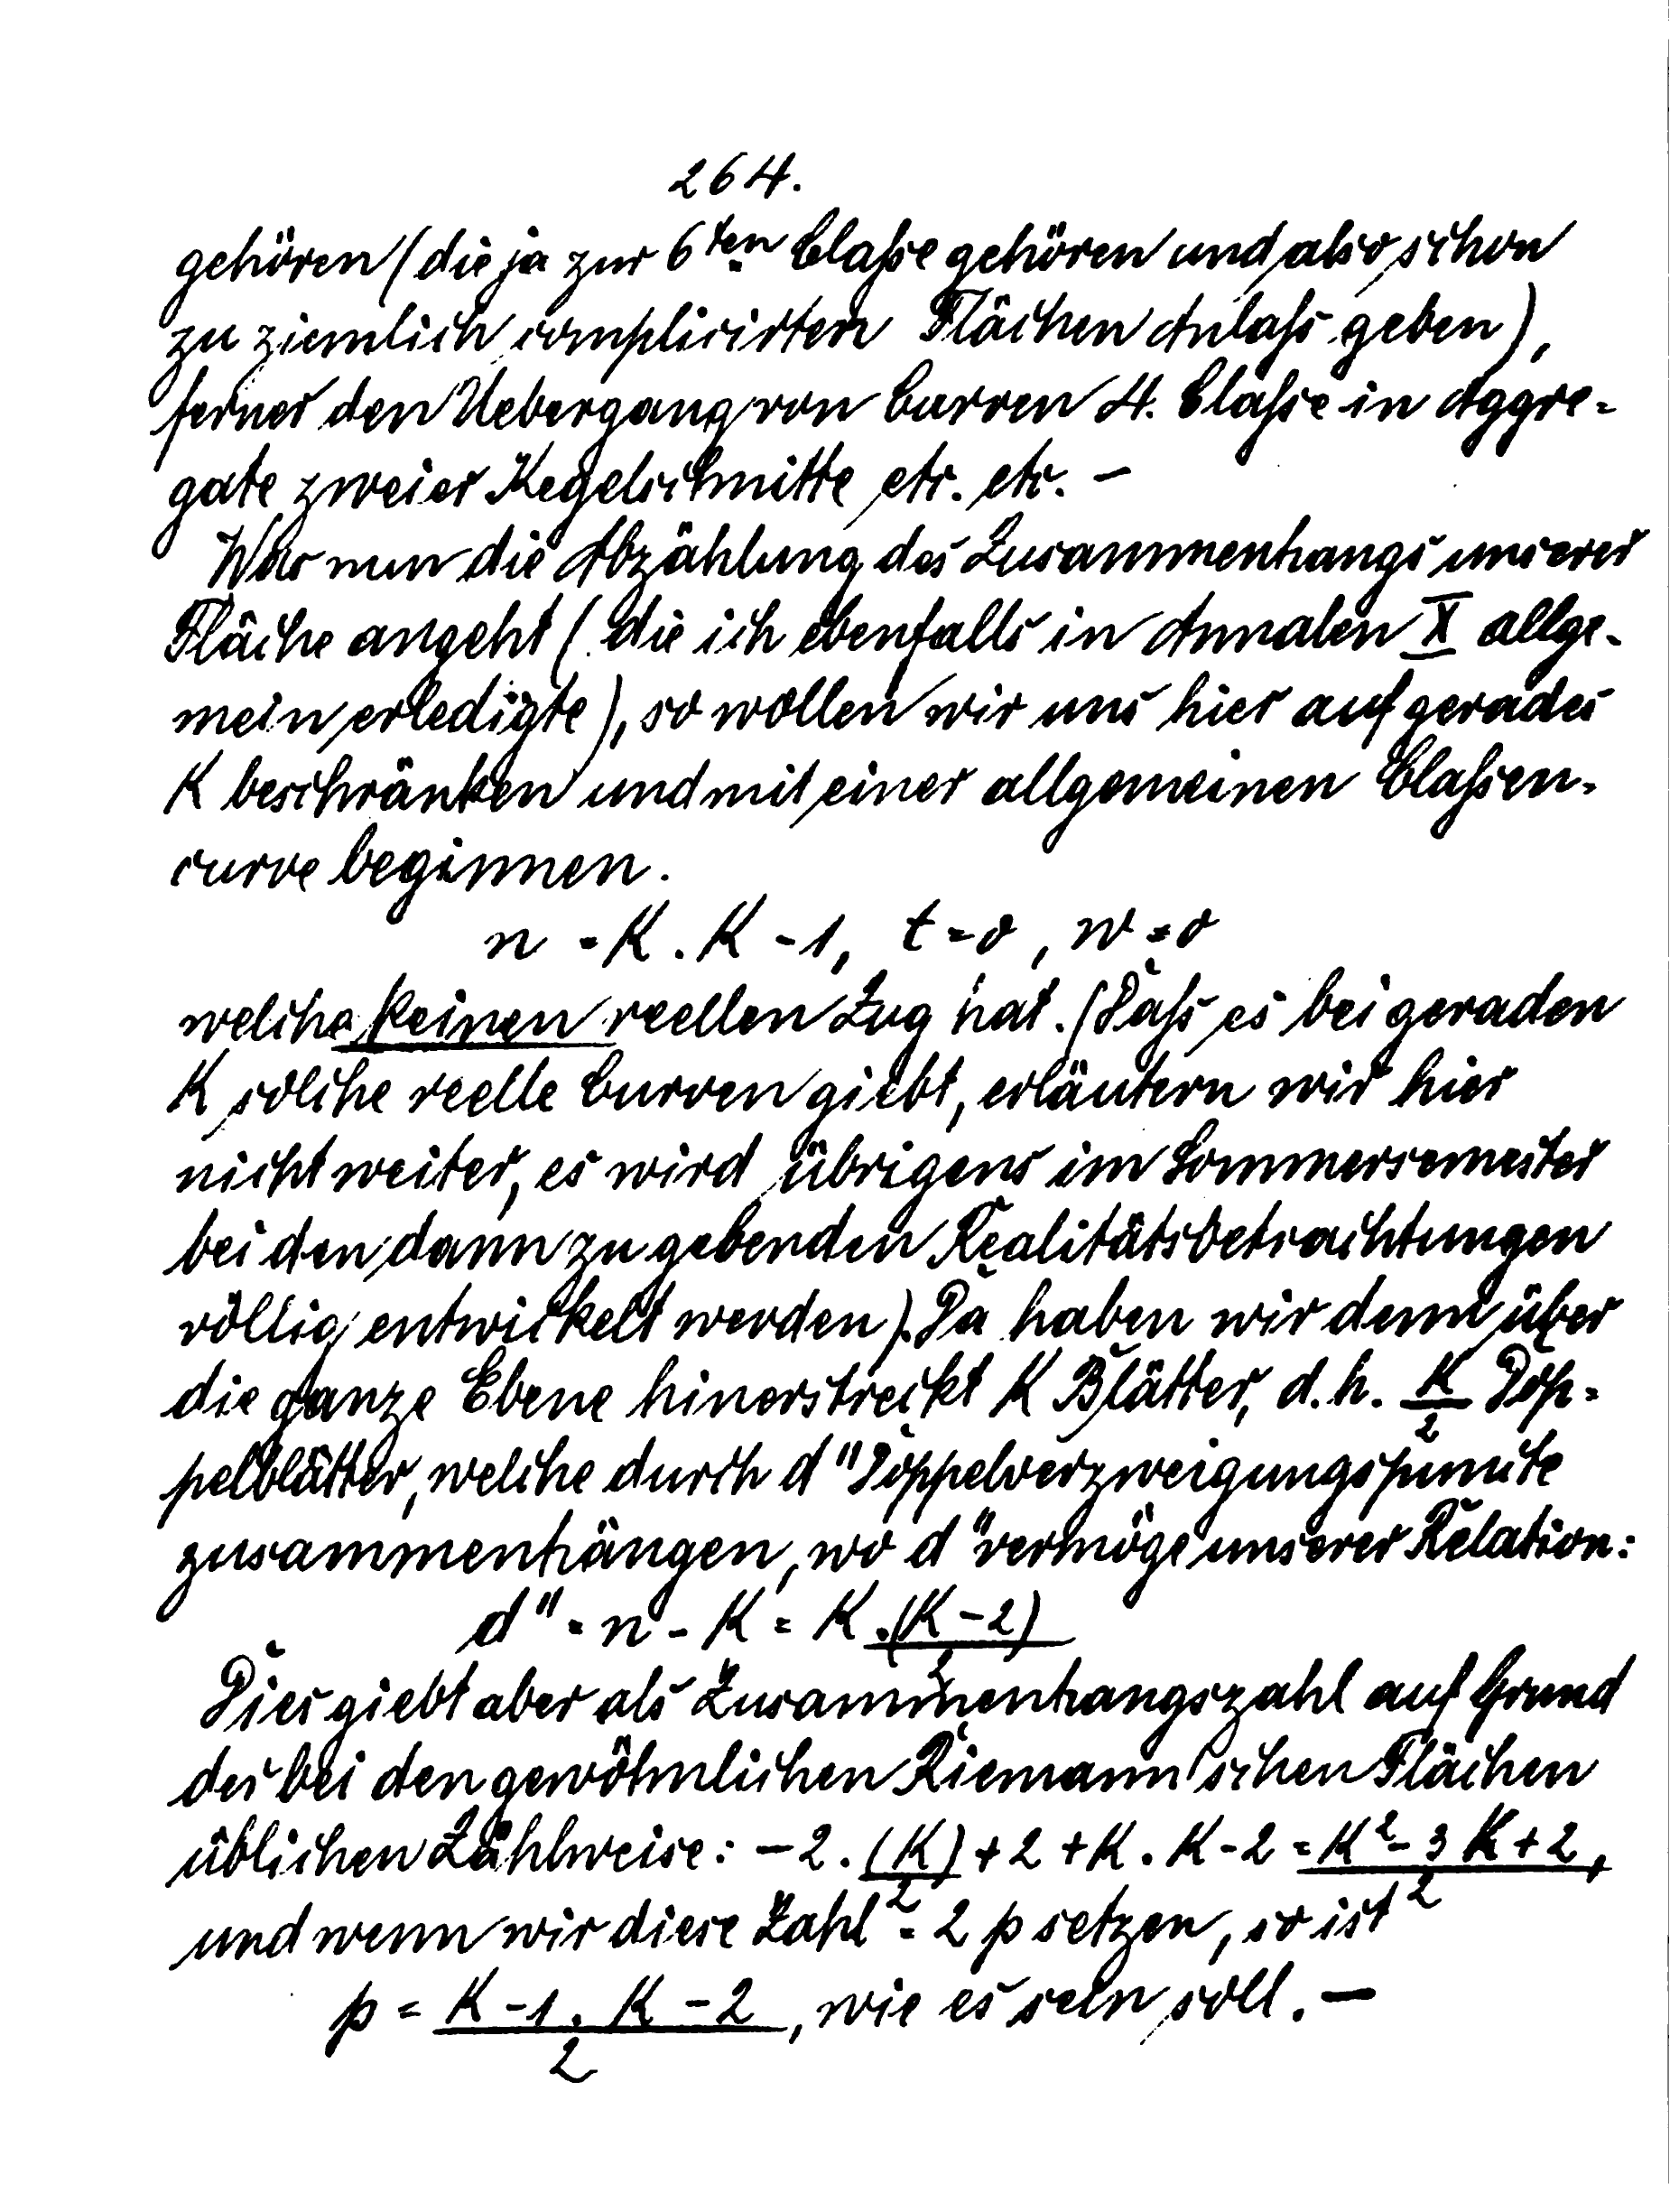 264.
gehören (die ja zur 6ten Classe gehören und also schon
zu ziemlich complicirten Flächen Anlass geben),
ferner den Uebergang von Curven 4. Classe in Aggre-
gate zweier Kegelschnitte etc. etc. –
Was nun die Abzählung des Zusammenhangs unserer
Fläche angeht (die ich ebenfalls in Annalen X allge-
mein erledigte), so wollen wir uns hier auf gerades
K beschränken und mit einer allgemeinen Classen-
curve beginnen.
n = K . K - 1, t = o, w = o
welche keinen reellen Zug hat. (Dass es bei geraden
K solche reelle Curven giebt, erläutern wir hier
nicht weiter, es wird übrigens im Sommersemester
bei den dann zu gebenden Realitätsbetrachtungen
völlig entwickelt werden). Da haben wir denn über
die ganze Ebene hinerstreckt K Blätter, d. h. K/2 Dop-
pelblätter, welche durch d" Doppelverzweigungspuncte
zusammenhängen, wo d" vermöge unserer Relation:
d" = n - K = K . (K - 2)/2
Dies giebt aber als Zusammenhangszahl auf Grund
der bei den gewöhnlichen Riemann'schen Flächen
üblichen Zählweise: - 2 . (K)/2 + 2 + K . K - 2 = K² - 3 K + 2,/2
und wenn wir diese Zahl = 2 p setzen, so ist
p = K - 1 . K - 2/2, wie es sein soll. –